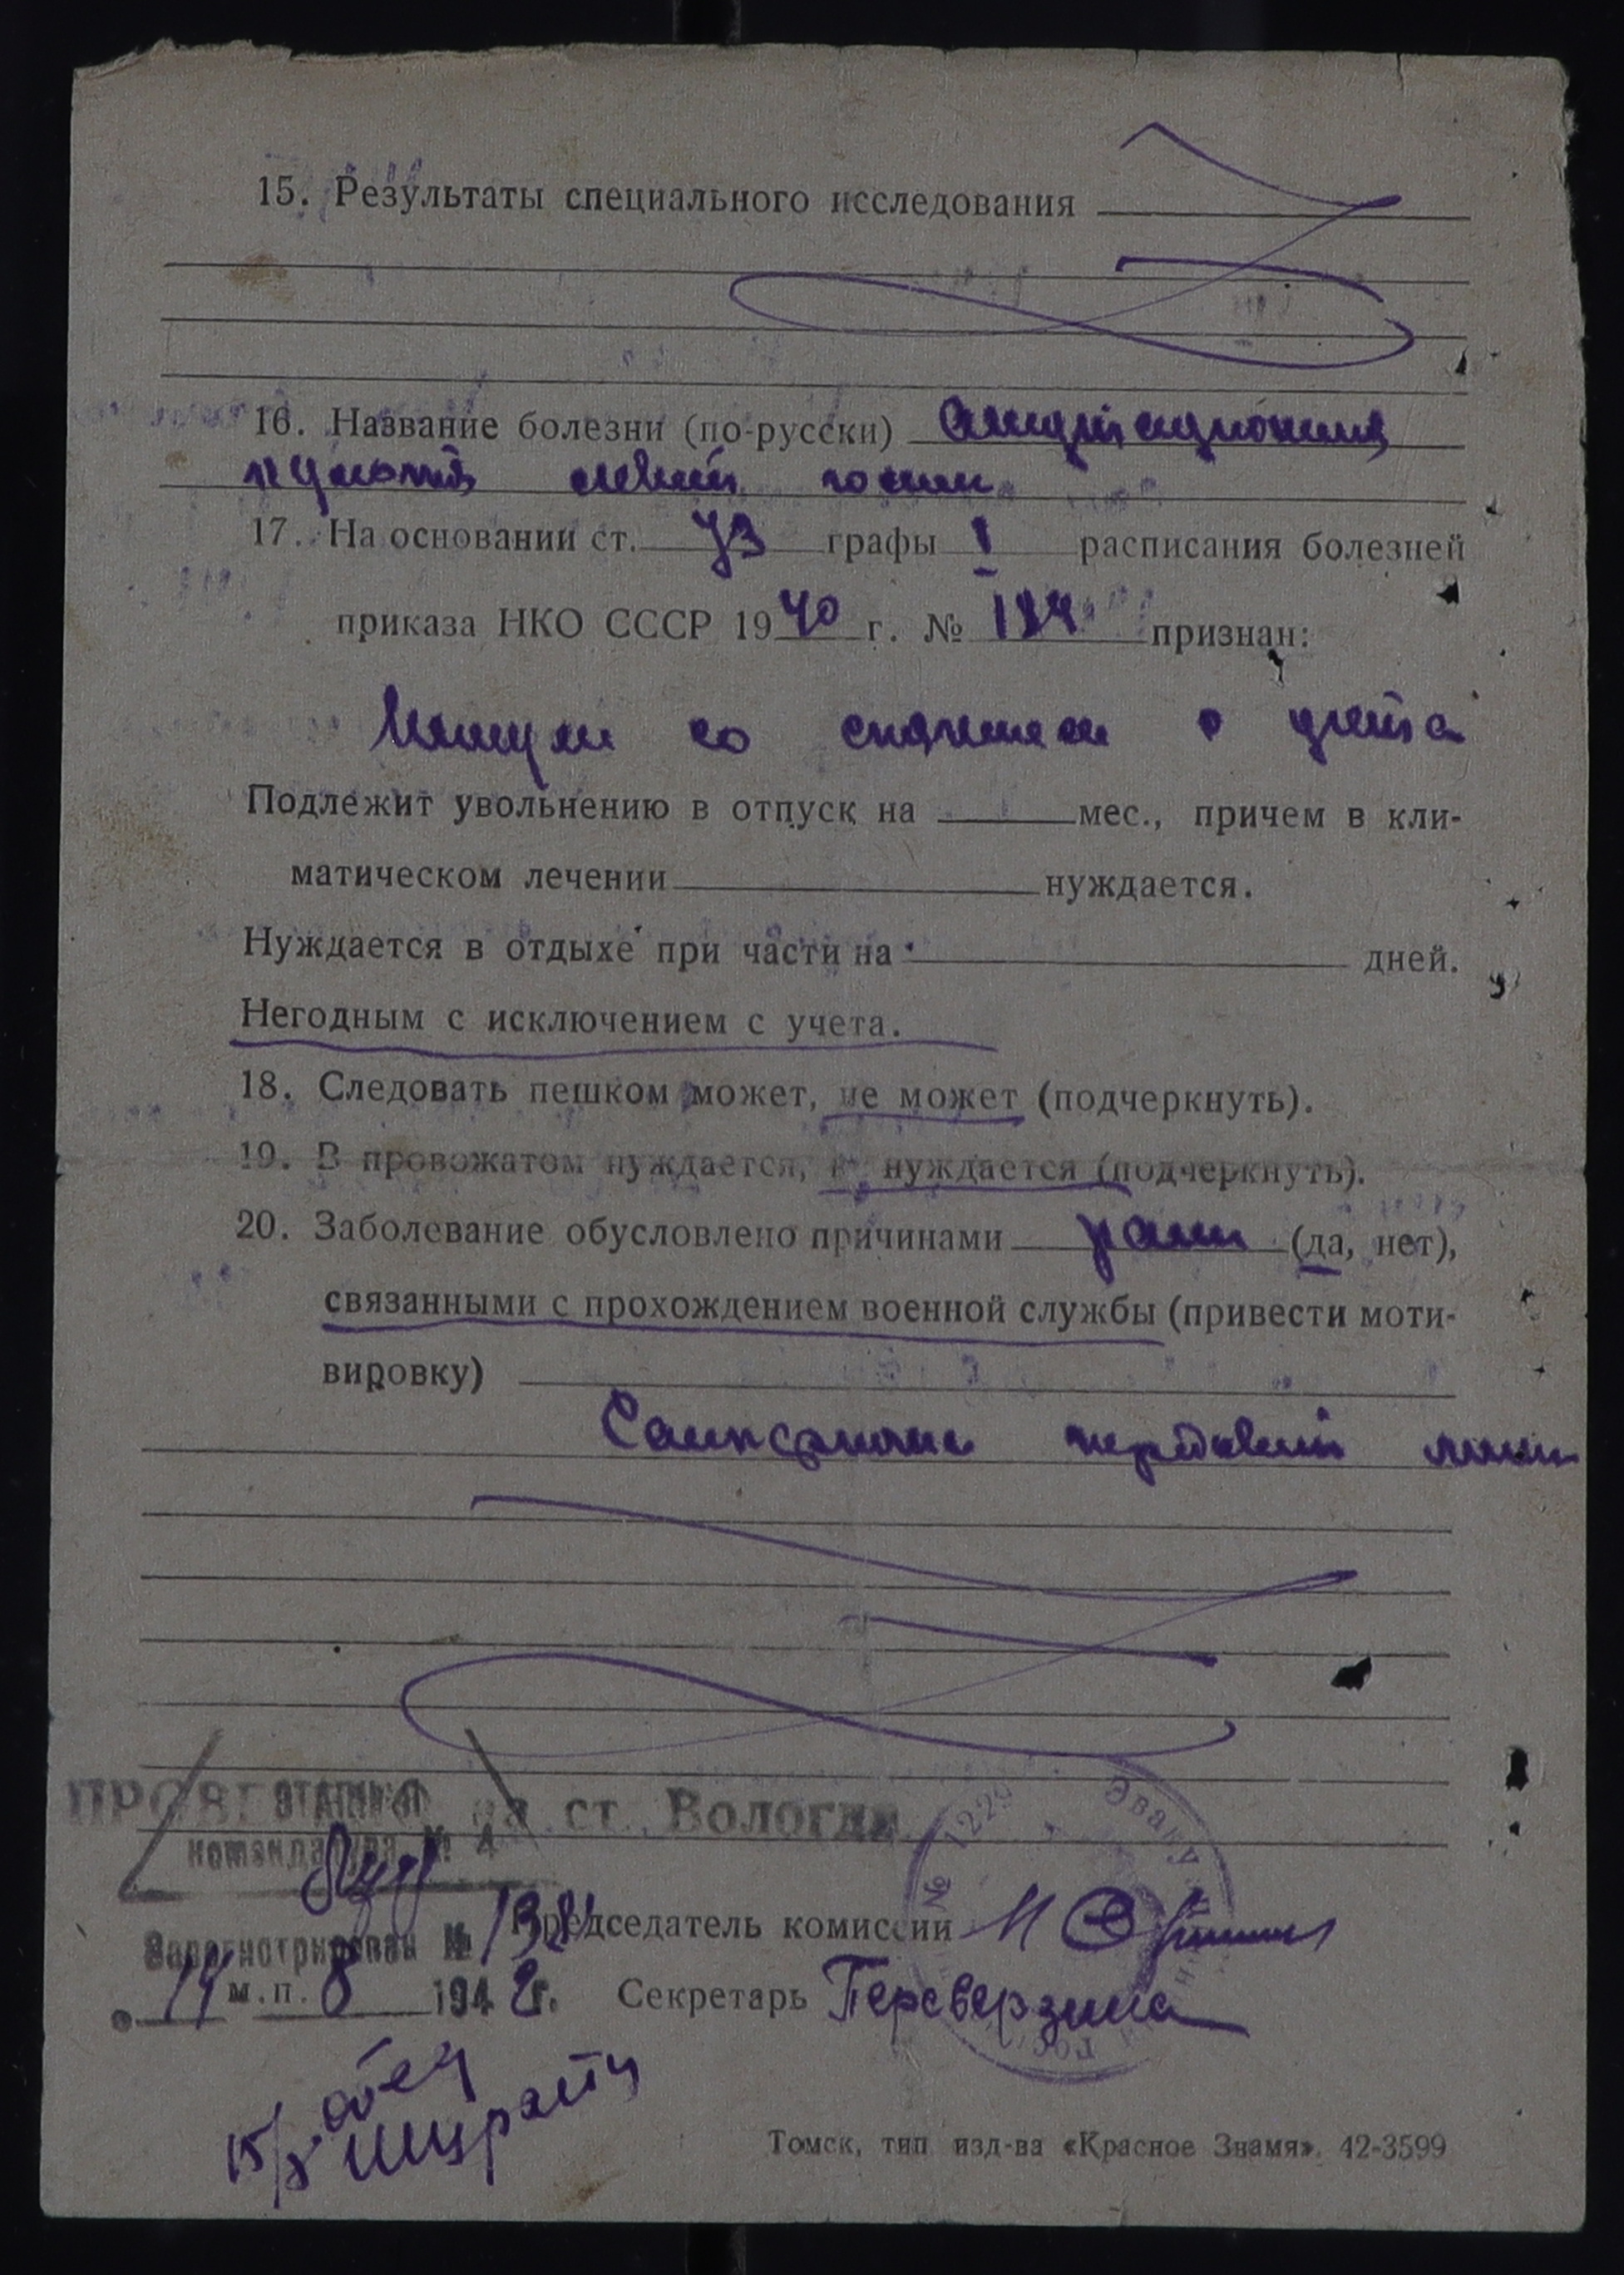 15. Результаты специального исследования
16. Название болезни (по-русски) Ампутационная
культя левой голени
17. На основании ст. 73 графы I расписания болезней
приказа НКО СССР 1940 г. № 184 признан:
со снятием с учета
Подлежит увольнению в отпуск на мес., причем в кли-
матическом лечении нуждается.
Нуждается в отдыхе при части на дней.
Негодным с исключением с учета.
18. Следовать пешком может, не может (подчеркнуть).
19. В провожатом нуждается, не нуждается (подчеркнуть).
20. Заболевание обусловлено причинами (да, нет),
связанными с прохождением военной службы (привести моти-
вировку)
передовой линии
ЭТАПНАЯ на ст. Вологда
комендатура № 4
№ 1229 Эваку
Председатель комиссии
Зарегистрирован №
14 м.п. 8 1942 г. Секретарь Переверзина
обед
15/8
Томск, тип изд-ва «Красное Знамя». 42-3599